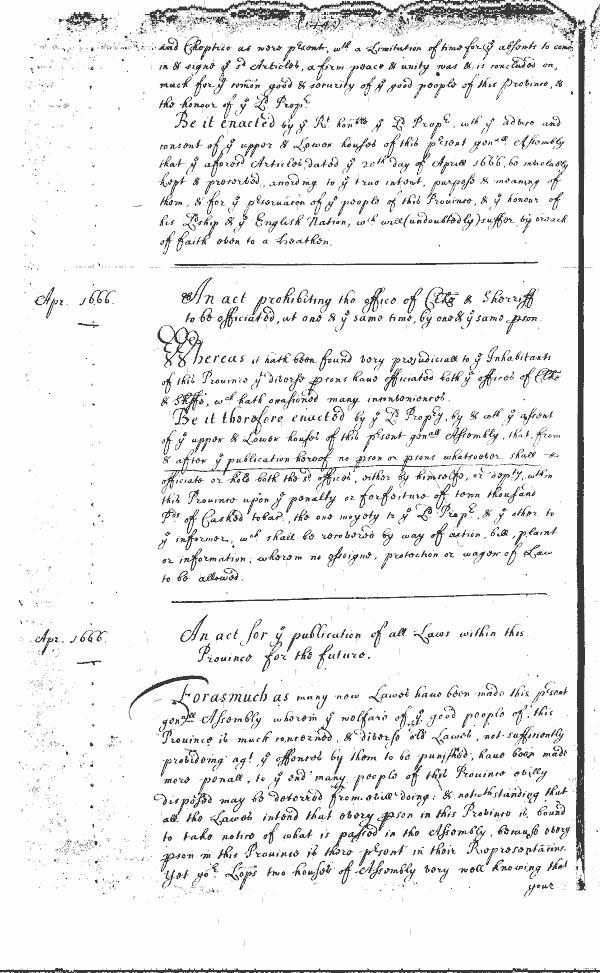 and Choptico as were psent, wth a Limitation of time for ye absents to come
in & signe ye sd Articles, a firm peace & unity was & is concluded on,
much for ye comon good & security of ye good people of this Province, &
the honour of ye Ld Propr.
Be it enacted by ye Rt honble ye Ld Propr. wth ye advise and
consent of ye upper & Lower houses of this psent genall Assembly
that ye aforesd Articles dated ye 20th day of Aprill 1666, be inviolably
kept & preserved, according to ye true intent, purpose & meaning of
them, & for ye pservacion of ye people of this Province, & ye honour of
his Lpship & ye English Nation, wch will (undoubtedly) suffer by breach
of faith even to a heathen.
Apr. 1666.
An act prohibiting the office of Clke & Sherriff
to be officiated, at one & ye same time, by one & ye same pson.
Whereas it hath been found very prejudiciall to ye Inhabitants
of this Province yt diverse psons have officiated both ye offices of Clke
& Shffe, wch hath ocasioned many inconveniences.
Be it therefore enacted by ye Ld Propry, by & wth ye assent
of ye upper & Lower houses of this psent genall Assembly, that from
& after ye publication hereof no pson or psons whatsoever shall
officiate or hold both the sd offices, either by himselfe, or depty, wthin
this Province upon ye penalty or forfeiture of tenn thousand
Pds of Casked tobac., the one moyety to ye Ld Propr. & ye other to
ye informer, wch shall be recovered by way of action, bill, plaint
or information, wherein no essoigne, protection or wager of Law
to be allowed.
Apr. 1666.
An act for ye publication of all Laws within this
Province for the future.
Forasmuch as many new Lawes have been made this psent
genall Assembly wherein ye welfare of ye good people of this
Province is much concerned, & diverse old Lawes, not sufficiently
provideing agt ye offenses by them to be punished, have been made
more penall, to ye end many people of this Province evilly
disposed may be deterred from evill doing: & notwthstanding that
all the Laws intend that every pson in this Province is bound
to take notice of what is passed in the Assembly, because every
pson in this Province is there psent in their Representacions.
Yet yor Lops two houses of Assembly very well knowing that
your